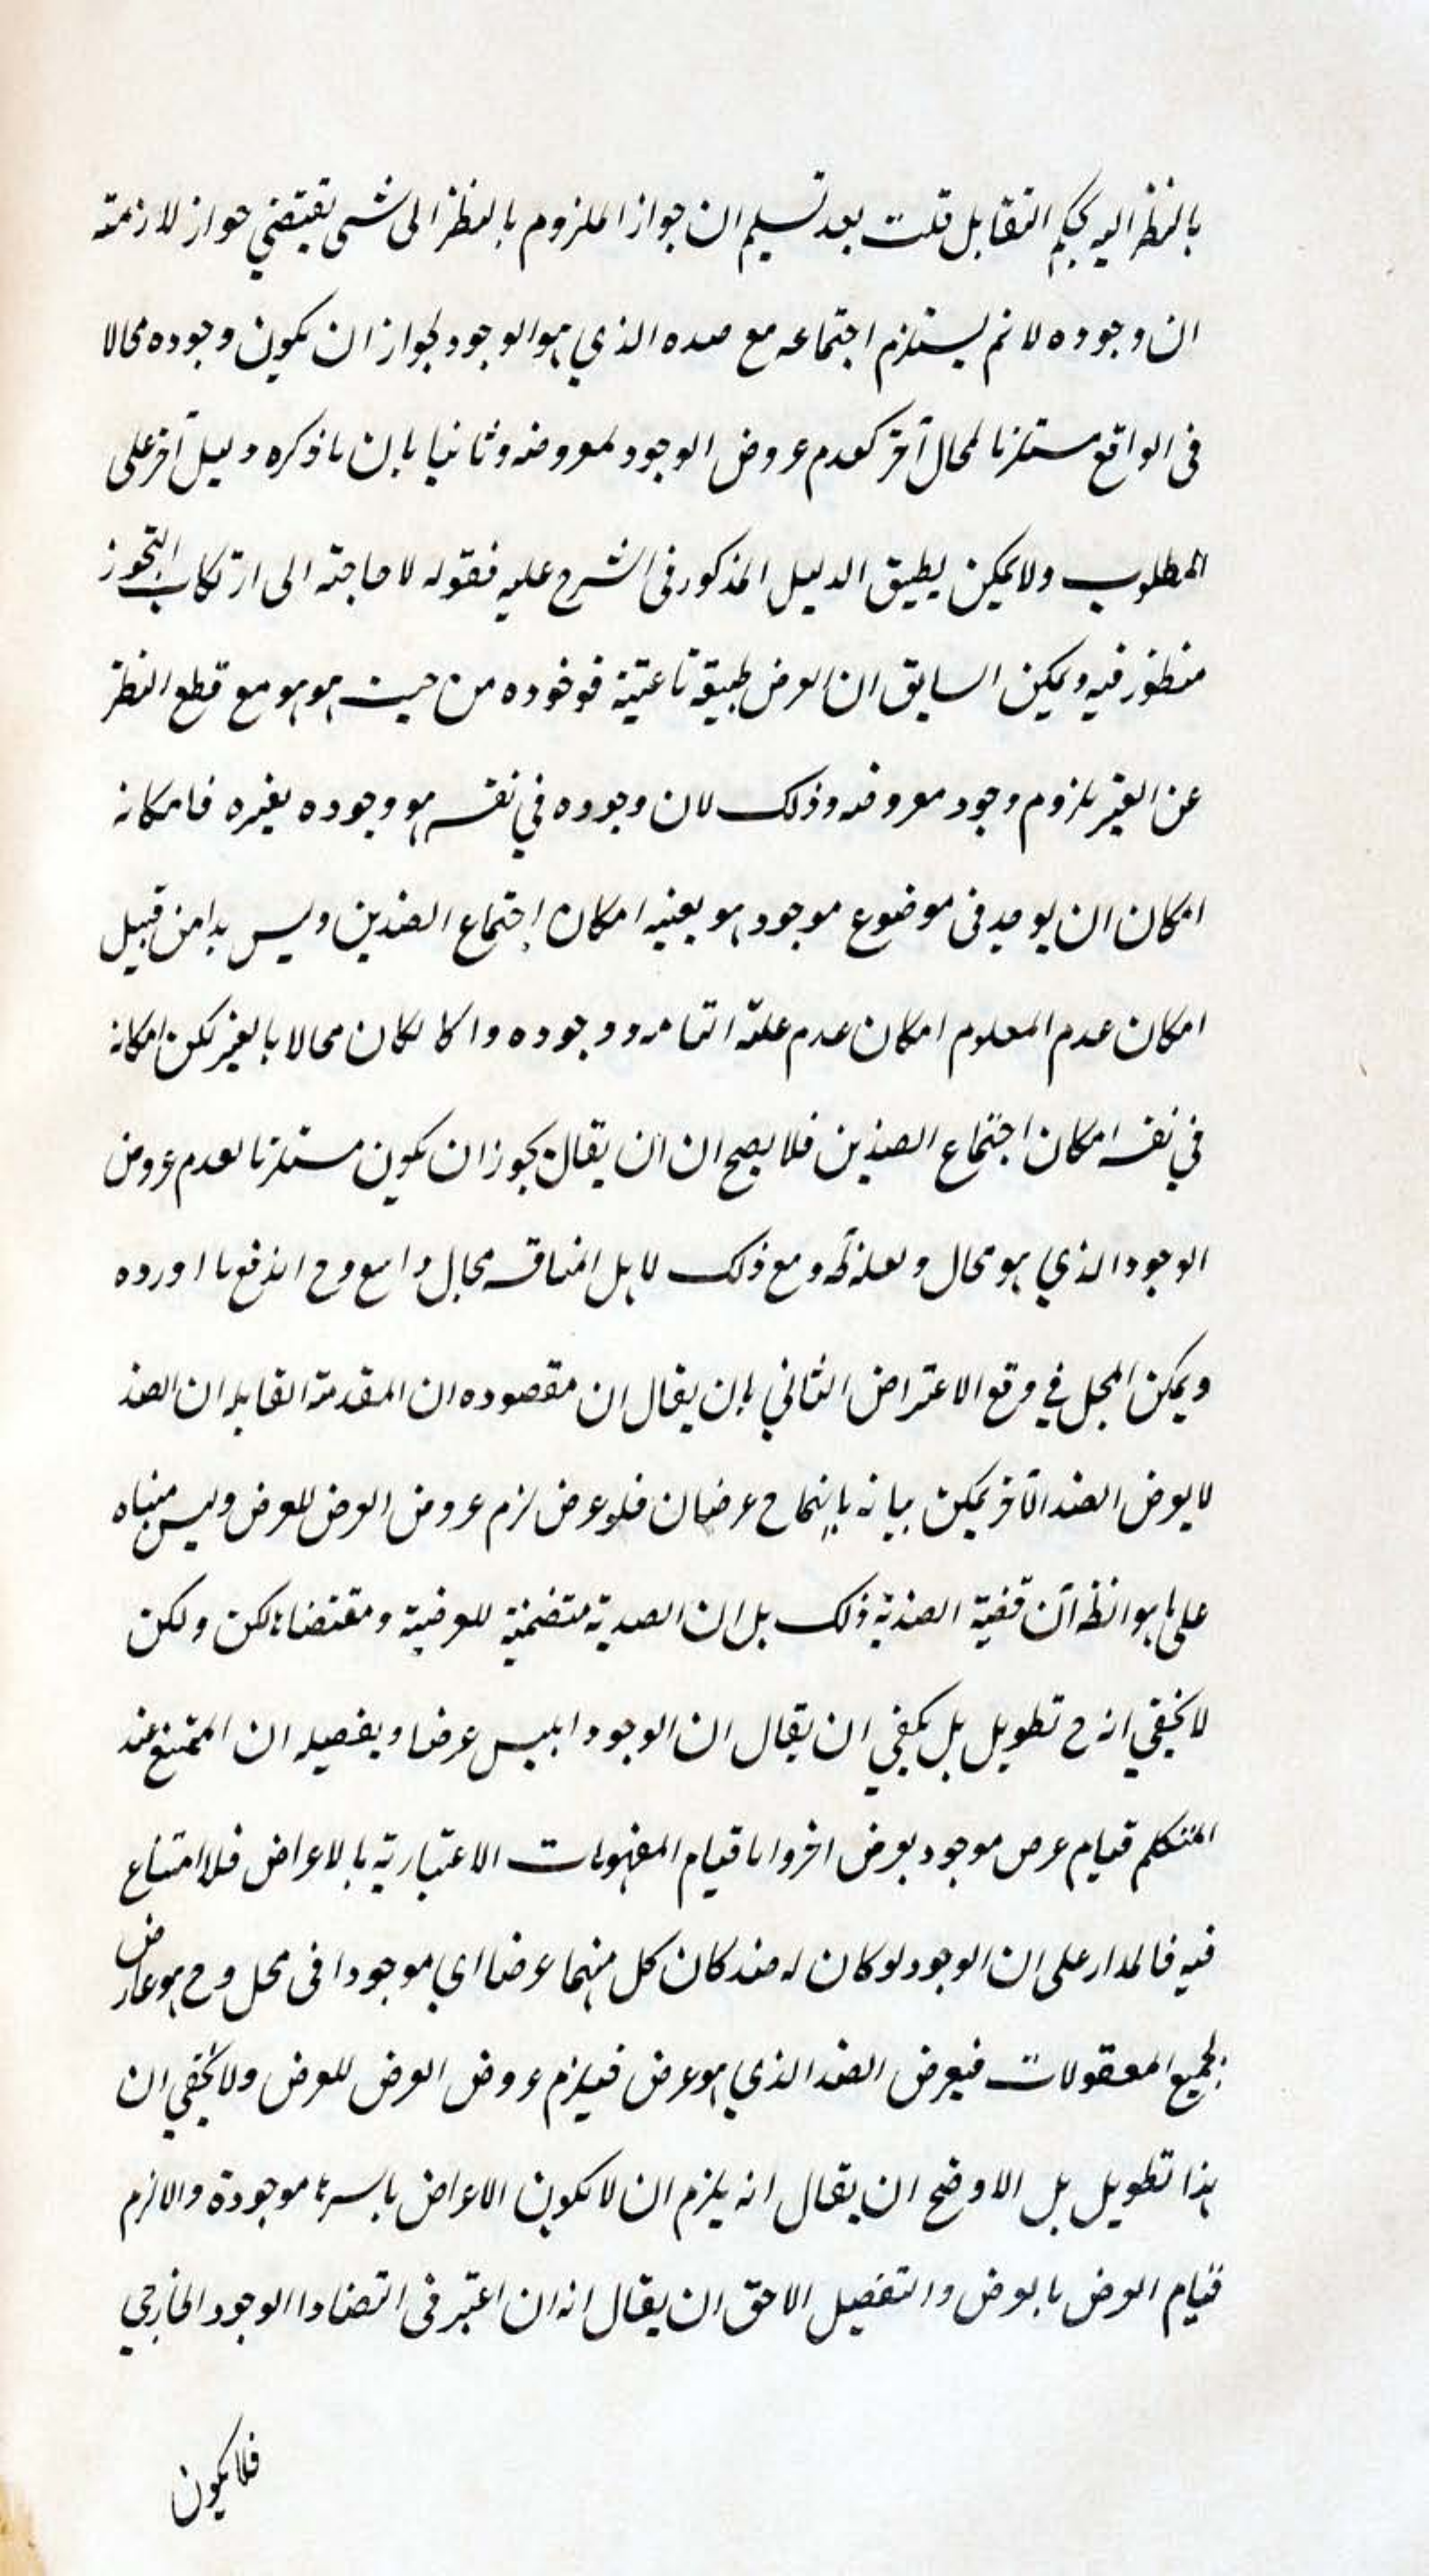 بالنظر اليه بحكم التقابل قلت بعد تسليم ان جواز الملزوم بالنظر الى شى يقتضي جواز لازمته
ان وجوده لا نم يستلزم اجتماعه مع صده الذي هو الوجود لجواز ان يكون وجوده محالا
فى الواقع مستلزما لمحال آخر كعدم عروض الوجود لمعروضه وثانيا بان ماذكره دليل آخر على
المطلوب ولا يمكن يطبيق الدليل المذكور فى الشرح عليه فقوله لا حاجته الى ارتكاب التجوز
منظور فيه ويمكن السابق ان العرض طبيقة ناعتية فوخوده من حيث هو هو مع قطع النظر
عن الغير يلزوم وجود معروضه وذلك لان وجوده في نفسه هو وجوده بغيره فامكانه
امكان ان يوجد فى موضوع موجود هو بعينه امكان اجتماع الضدين وليس هذا من قبيل
امكان عدم المعلوم امكان عدم علته التامه ووجوده وا كا لكان محالا بالغير لكن امكانه
في نفسه امكان اجتماع الضدين فلا يصح ان ان يقال يجوز ان يكون مستلزما لعدم عروض
الوجود الذي هو محال ولعله ومع ذلك لا بل المناقسه مجال واسع وح اندفع ما اورده
ويمكن المحل في وقع الاعتراض الثاني بان يقال ان مقصوده ان المقدمة القابله ان الضد
لا يعرض الضد الآخر يمكن بيانه بانهما ح عرضان فلو عرض لزم عروض العرض للعرض وليس مبناه
على ما هو انظه ان قضية الضدية ذلك بل ان الصدية متضمنية للعرضية ومقتضاها لكن ولكن
لا يخفي انه ح تطويل بل يكفي ان يقال ان الوجود ابليس عرضا ويفصيله ان الممتنع عند
المتكلم قيام عرص موجود بعرض اخر واما قيام المفهومات الاعتبارية بالاعراض فلا امتناع
فيه فالمدار على ان الوجود لو كان له ضد كان كل منهما عرضا اي موجودا فى محل وح هو عارض
لجميع المعقولات فيعرض الضد الذي هو عرض فيلزم عروض العرض للعرض ولا يخفي ان
هذا تطويل بل الاوضح ان يقال انه يلزم ان لا يكون الاعراض باسرها موجودة والا لزم
قيام العرض بالعرض والتفصيل الاحق ان يقال انه ان اعتبر فى التضاد الوجود الخارجي
فلا يكون